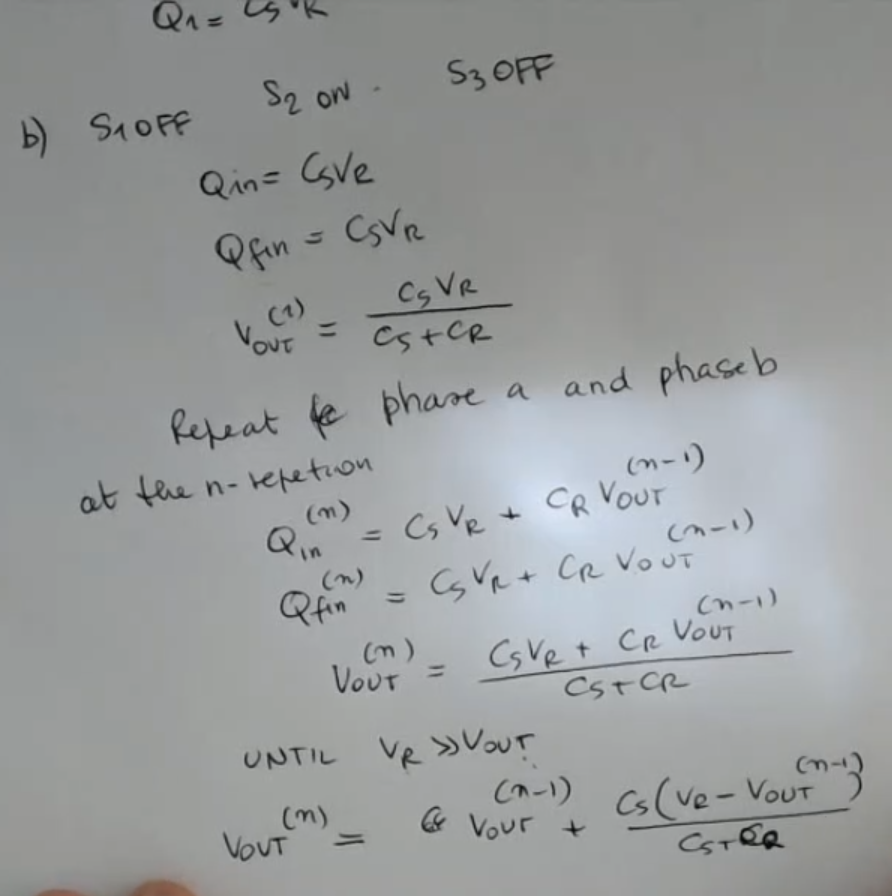 Q1 = CS VR
b) S1 OFF S2 ON . S3 OFF
Qin = CSVR
Qfin = CSVR
VOUT(1) = CS VR / CS + CR
Repeat phase a and phase b
at the n-repetion
Qin(n) = CS VR + CR VOUT(n-1)
Qfin(n) = CS VR + CR VOUT(n-1)
VOUT(n) = CS VR + CR VOUT(n-1) / CS + CR
UNTIL VR >> VOUT
VOUT(n) = VOUT(n-1) + CS (VR - VOUT(n-1)) / CS + CR